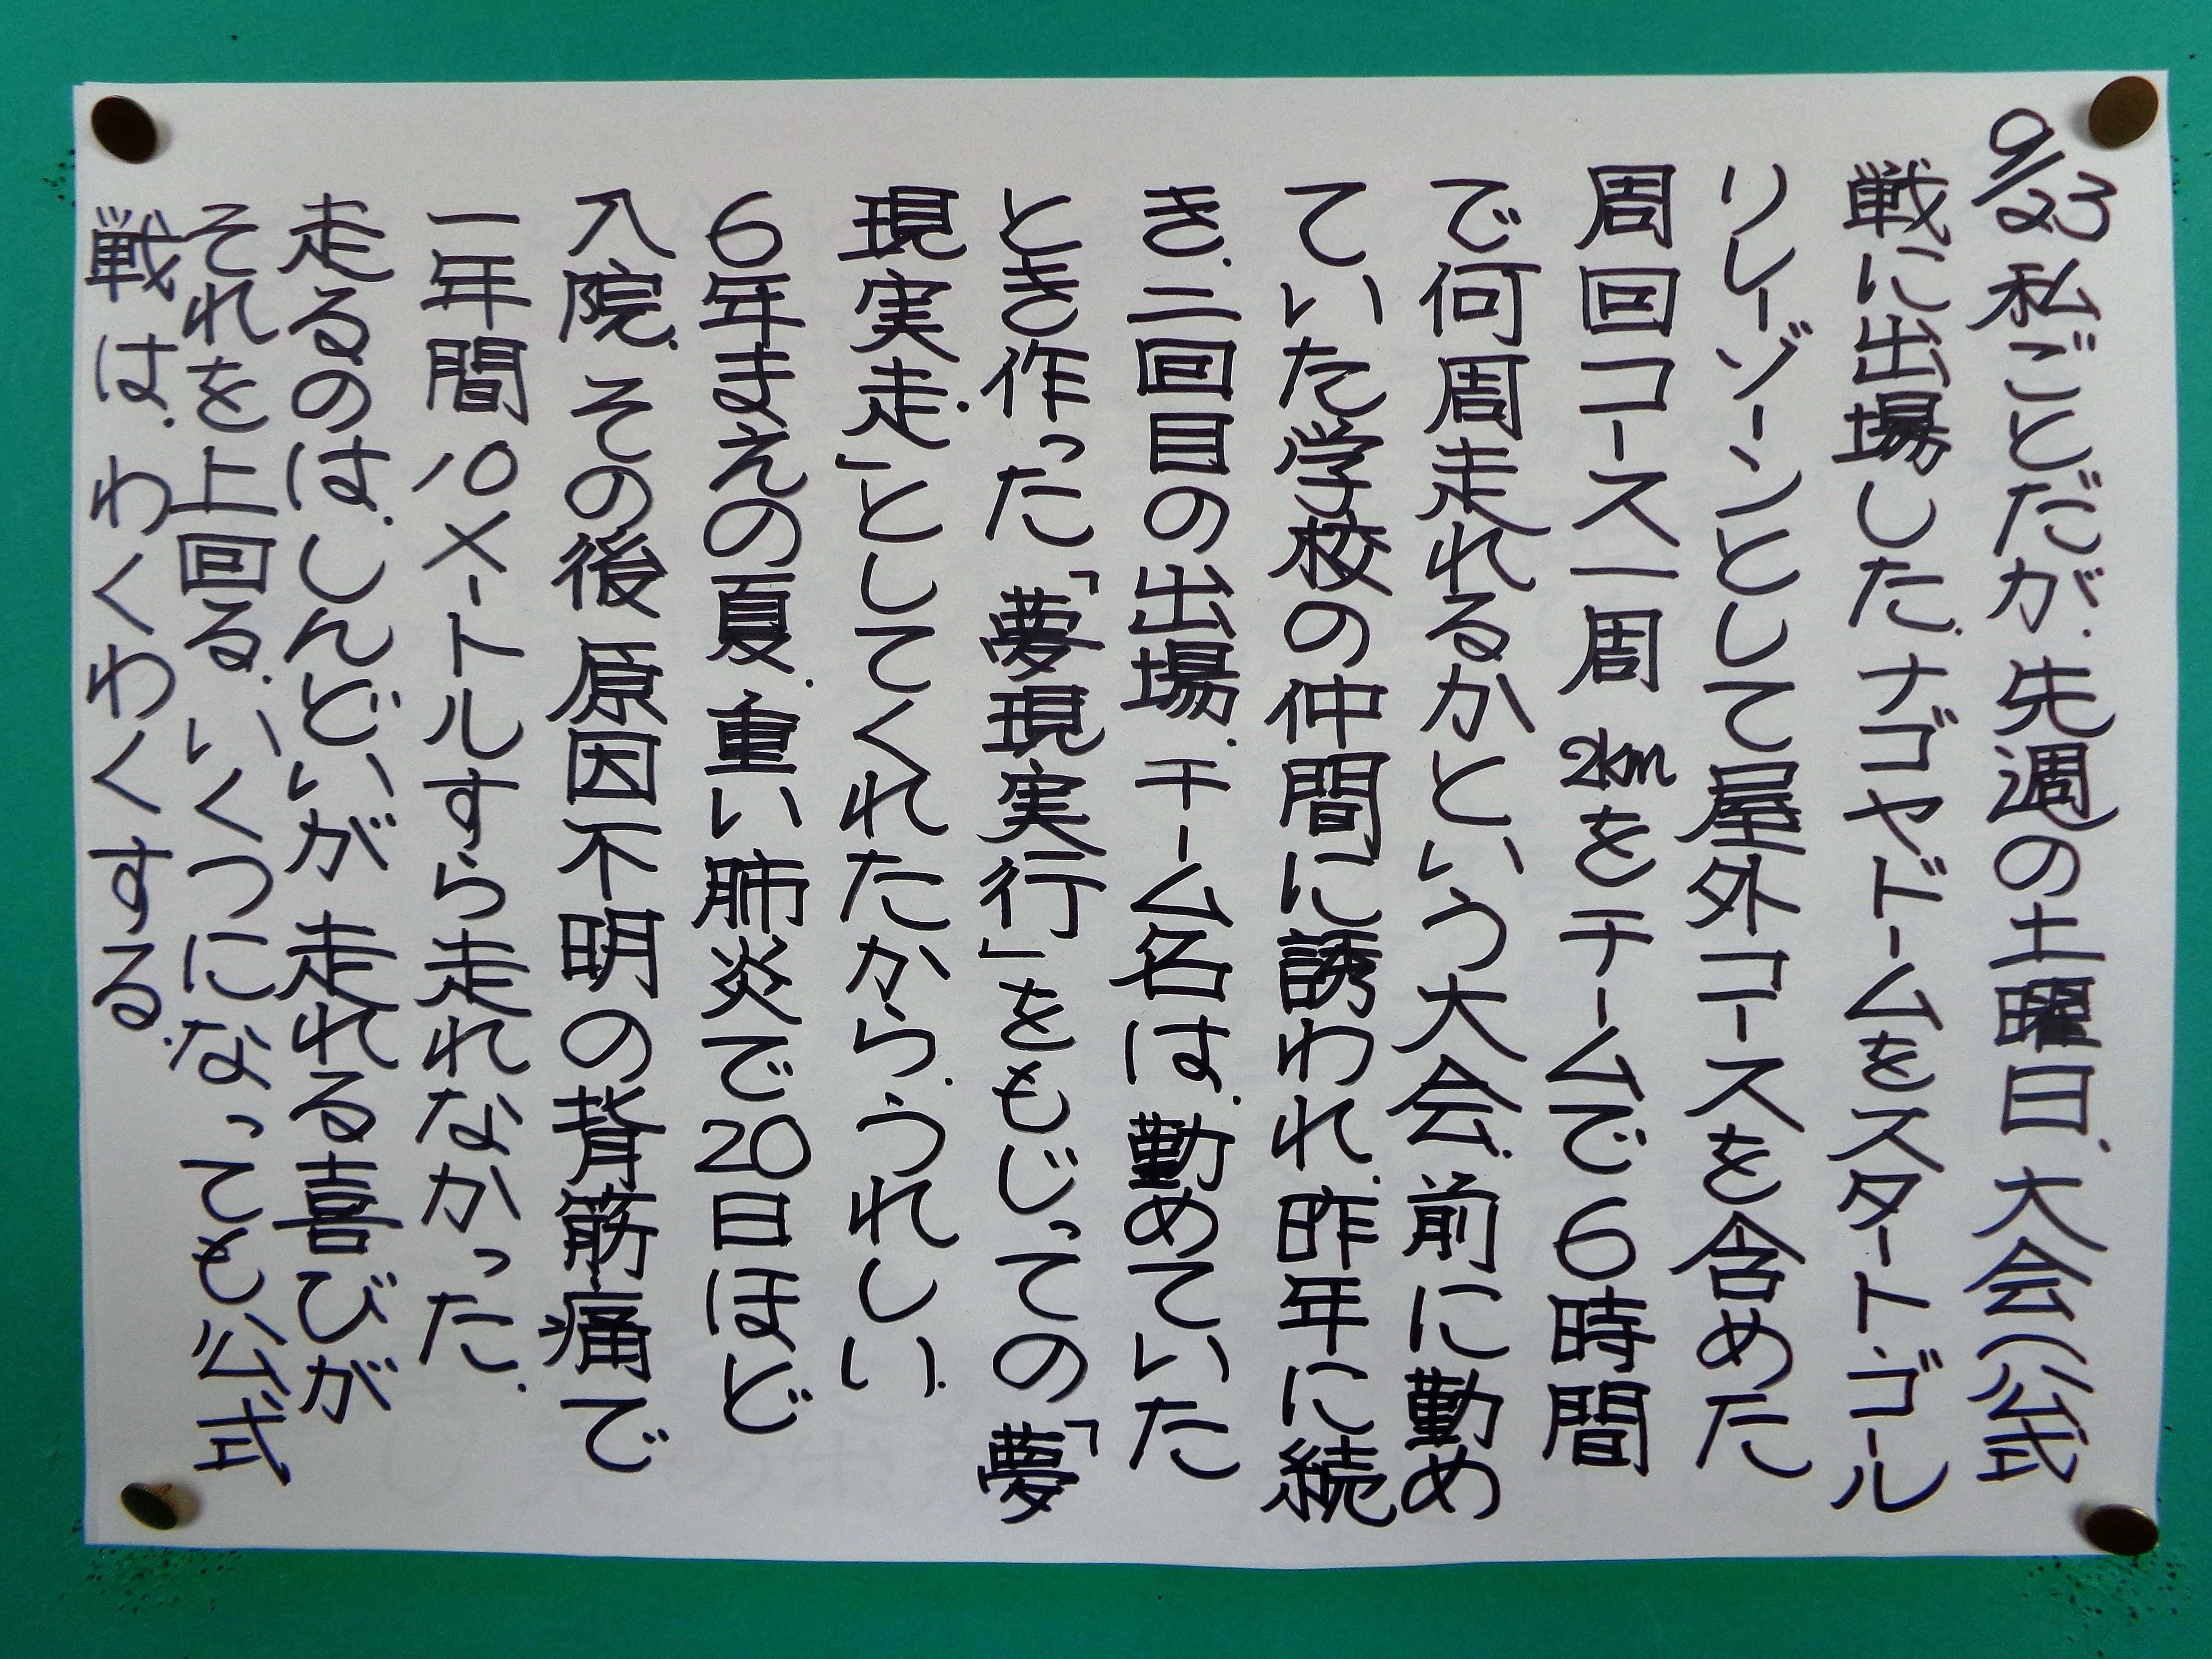 9/23 私ごとだが、先週の土曜日、大会(公式
戦に出場した。ナゴヤドームをスタート・ゴール
リレーゾーンとして屋外コースを含めた
周回コース一周2kmをチームで6時間
で何周走れるかという大会。前に勤め
ていた学校の仲間に誘われ、昨年に続
き、二回目の出場。チーム名は、勤めていた
とき作った「夢現実行」をもじっての「夢
現実走」としてくれたから、うれしい。
6年まえの夏、重い肺炎で20日ほど
入院、その後原因不明の背筋痛で
一年間10メートルすら走れなかった。
走るのは、しんどいが走れる喜びが
それを上回る。いくつになっても公式
戦は、わくわくする。